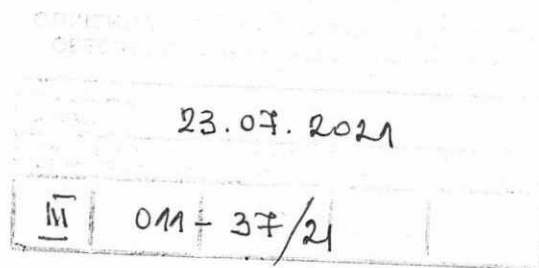 23.07.2021
III 011-37/21